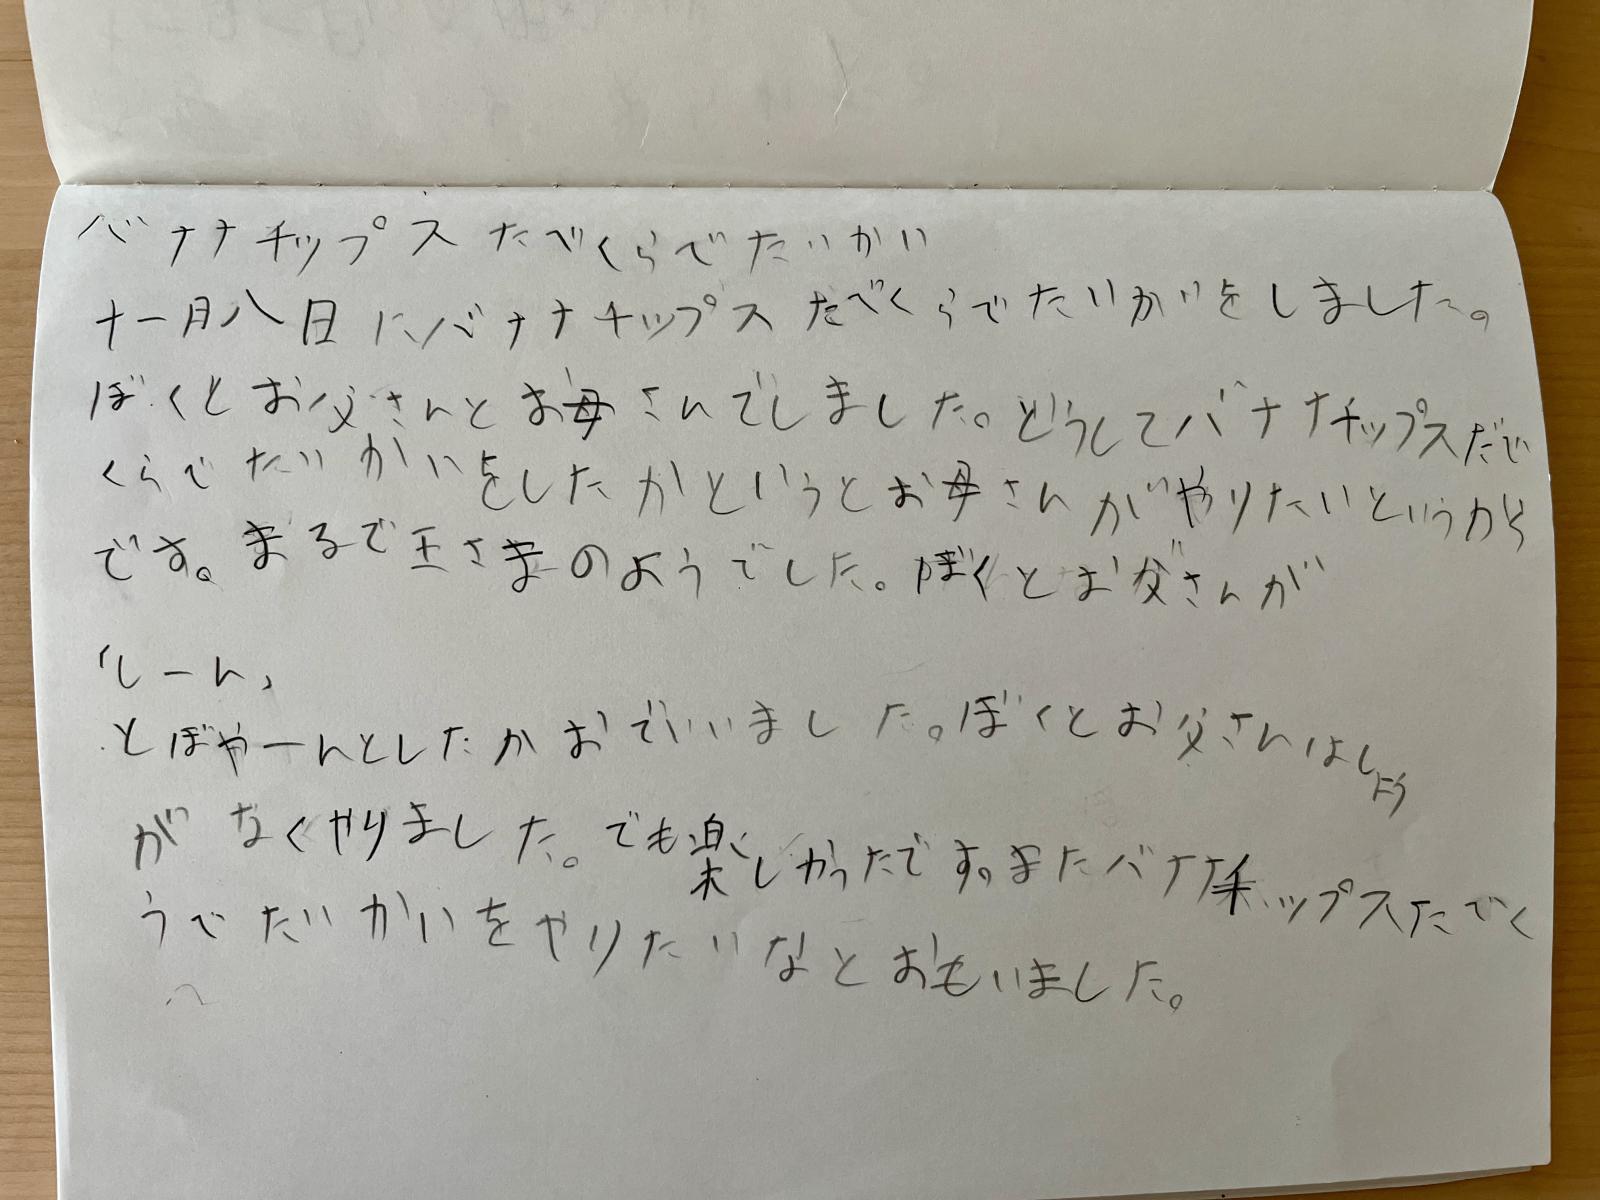 バナナチップスたべくらべたいかい
十一月八日にバナナチップスたべくらべたいかいをしました。
ぼくとお父さんとお母さんでしました。どうしてバナナチップスだべ
くらべたいかいをしたかというとお母さんがやりたいというから
です。まるで王さまのようでした。ぼくとお父さんが
「しーん」
とぼやーんとしたかおでいいました。ぼくとお父さんはしよう
がなくやりました。でも楽しかったです。またバナナチップスたべく
らべたいかいをやりたいなとおもいました。